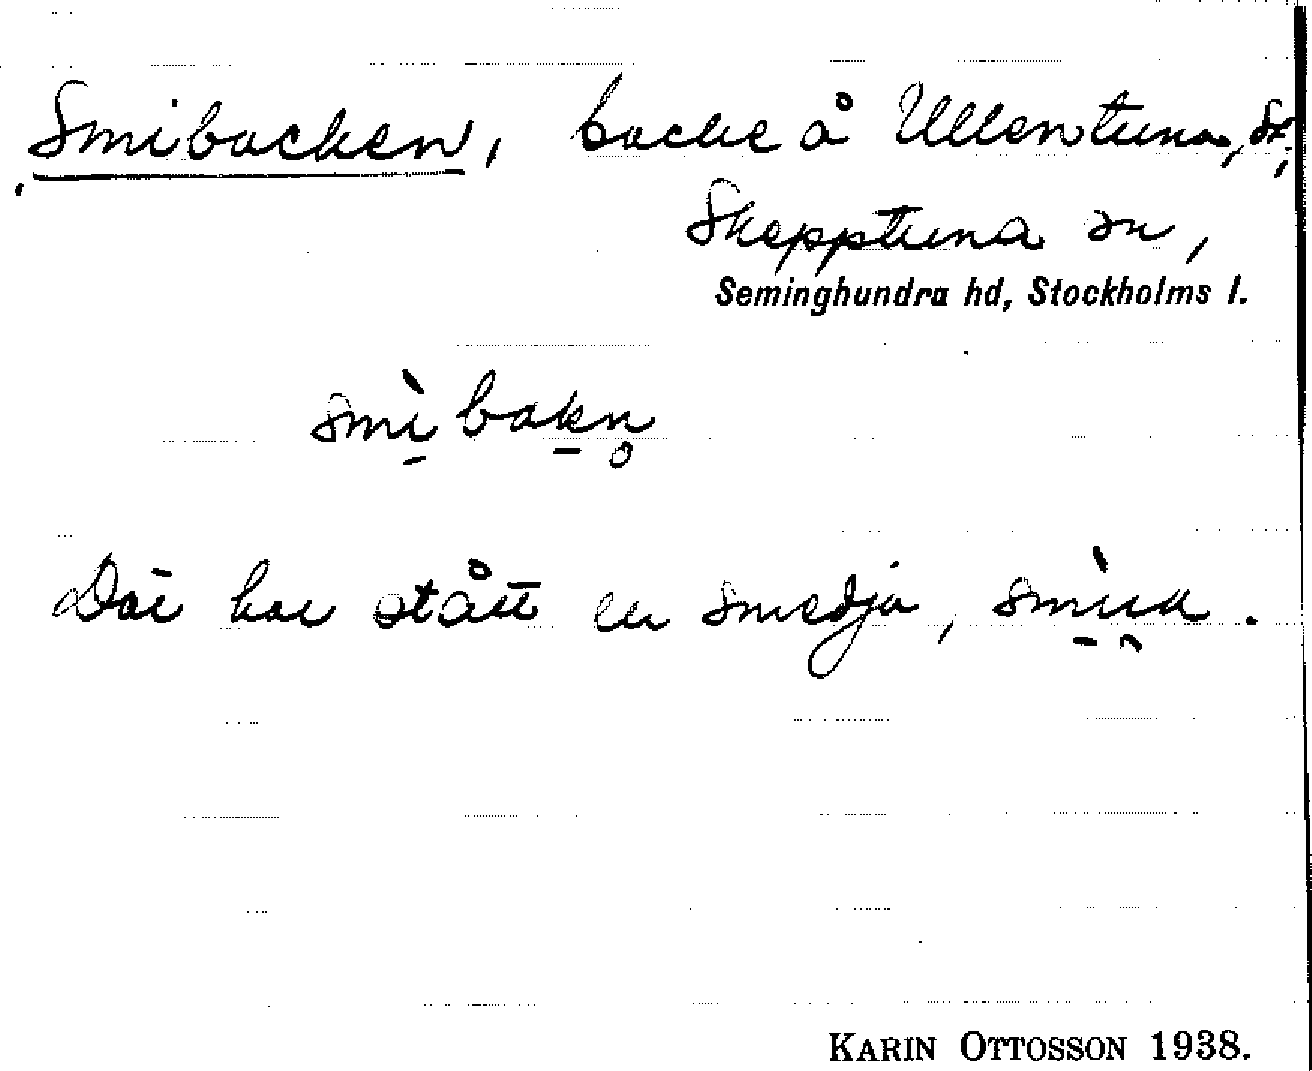 Smibacken, backe å Ullentuna,
Skepptuna sn,
Seminghundra hd, Stockholms l.
smì̠bak̠n̥
Där har stått en smedja,
KARIN OTTOSSON 1938.